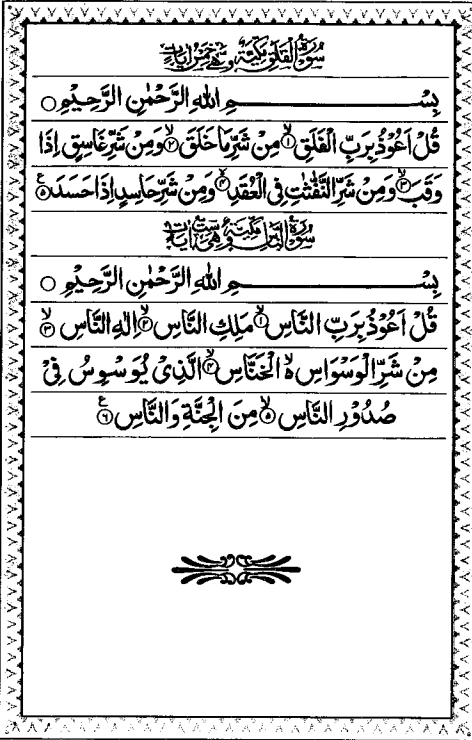 سُوْرَةُ الْفَلَقِ مَكِّيَّةٌ وَّهِىَ خَمْسُ اٰيَاتٍ
بِسْــــــــــــــمِ اللهِ الرَّحْمٰنِ الرَّحِيْمِ ○
قُلْ اَعُوْذُ بِرَبِّ الْفَلَقِ ۙ﴿۱﴾ مِنْ شَرِّ مَا خَلَقَ ۙ﴿۲﴾ وَمِنْ شَرِّ غَاسِقٍ اِذَا
وَقَبَ ۙ﴿۳﴾ وَمِنْ شَرِّ النَّفّٰثٰتِ فِى الْعُقَدِ ۙ﴿۴﴾ وَمِنْ شَرِّ حَاسِدٍ اِذَا حَسَدَ ﴿۵﴾ ع
سُوْرَةُ النَّاسِ مَكِّيَّةٌ وَّهِىَ سِتُّ اٰيَاتٍ
بِسْــــــــــــــمِ اللهِ الرَّحْمٰنِ الرَّحِيْمِ ○
قُلْ اَعُوْذُ بِرَبِّ النَّاسِ ۙ﴿۱﴾ مَلِكِ النَّاسِ ۙ﴿۲﴾ اِلٰهِ النَّاسِ ۙ﴿۳﴾
مِنْ شَرِّ الْوَسْوَاسِ ۙ۬ الْخَنَّاسِ ۙ﴿۴﴾ الَّذِىْ يُوَسْوِسُ فِىْ
صُدُوْرِ النَّاسِ ۙ﴿۵﴾ مِنَ الْجِنَّةِ وَالنَّاسِ ﴿۶﴾ ع